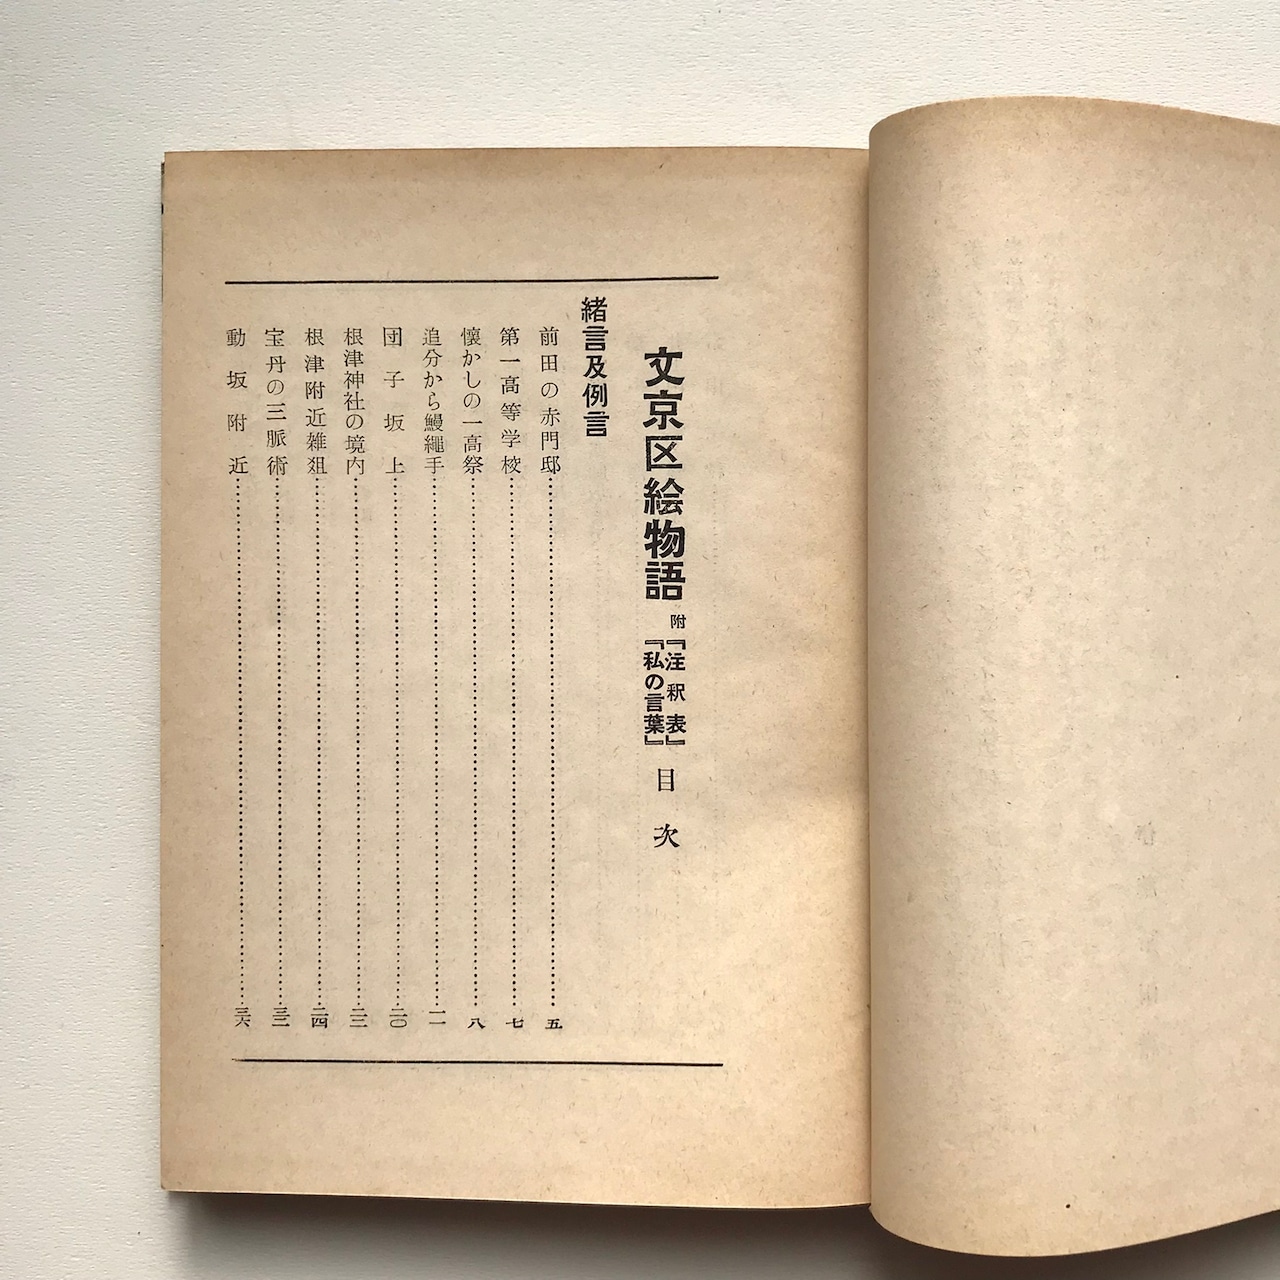 文京区絵物語 附『注釈表』『私の言葉』 目次
緒言及例言
前田の赤門邸……五
第一高等学校……七
懐かしの一高祭……八
追分から鰻繩手……一一
団子坂上……二〇
根津神社の境内……二三
根津附近雑爼……二四
宝丹の三脈術……三二
動坂附近……三六